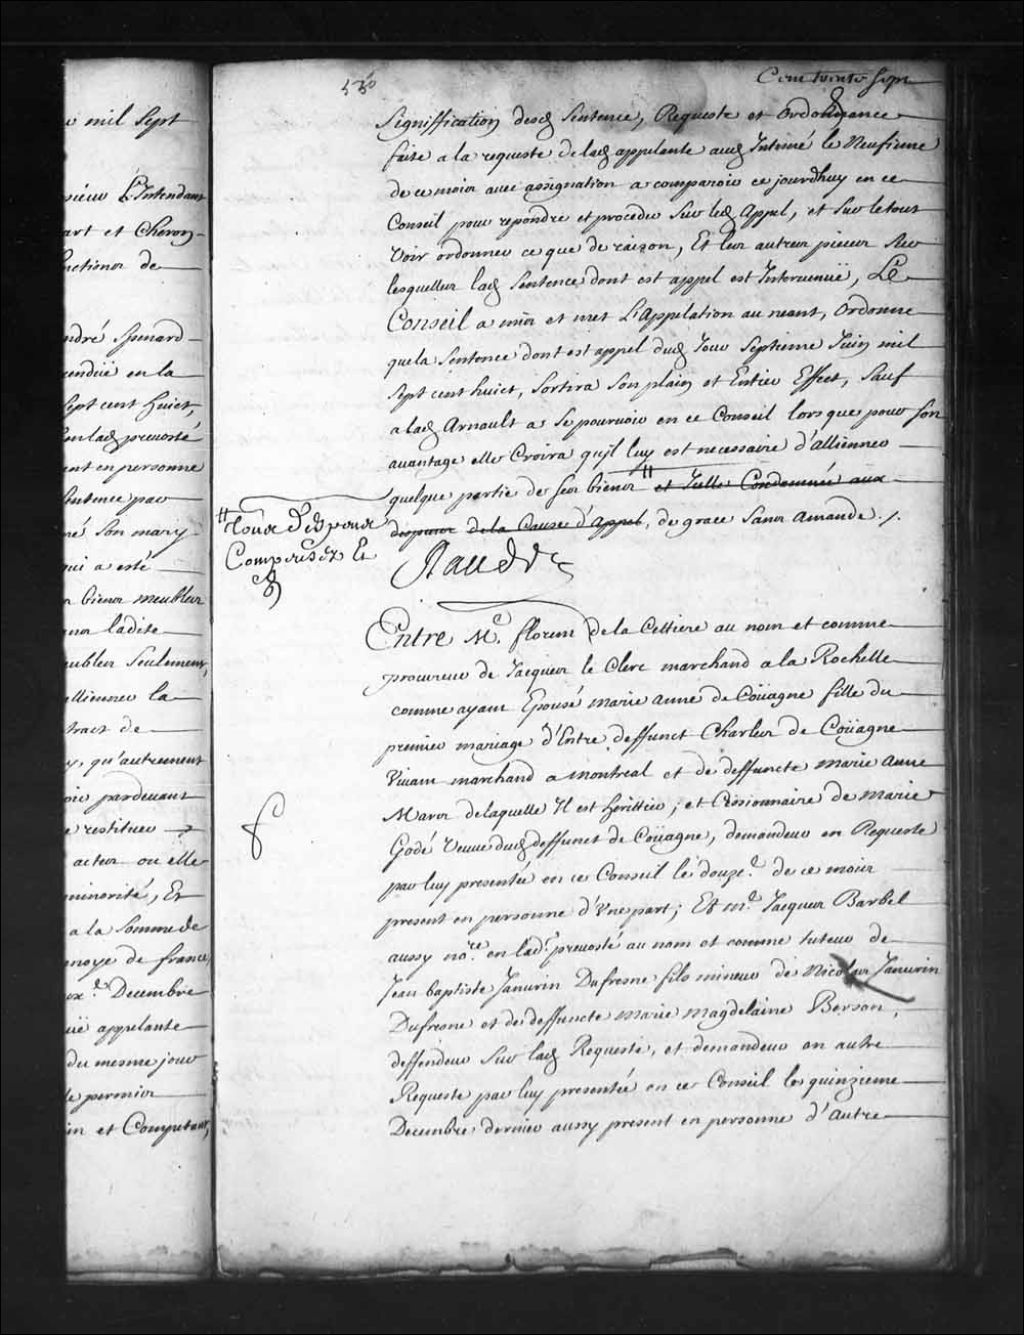 e mil Sept
nsieur L'Intendant
art et Cheron
nctions de
ndré Spenard
rendüe en la
Sept cent huict,
en lad prevosté
ent en personne
Sentence par
né son mary
qui a esté
s biens meubles
ladite
meubles seulement,
alliener la
tract de
qu'autrement
pardevant
e restituer
acteur ou elle
minorité, Et
a la somme de
noye de france,
Decembre
üe appelante
du mesme jour
le premier
in et Competant,
530
Cent trente Sept
Signiffication desd Sentence, Requeste et ordonnance
faite a la requeste de lad appelante aud Intimé le Neufieme
de ce mois avec assignation a comparoir ce jourdhuy en ce
Conseil pour repondre et proceder sur led Appel, et sur le tout
Voir ordonner ce que de raison, Et les autres pieces sur
lesquelles lad Sentence dont est appel est Intervenüe, Le
Conseil a mis et met L'Appelation au neant, ordonne
que la Sentence dont est appel dud Jour Septieme Juin mil
Sept cent huict, Sortira son plain et Entier Effect, Sauf
a lad Arnault a se pourvoir en ce Conseil lors que pour son
avantage elle Croira qu'il luy est necessaire d'alliener
quelque partie de ses biens " et Icelle Condamnée aux
despens de la Cause d'Appel, de grace sans Amande ./.
" Tous Despens
Compensez Et
Raudot
Entre Me. florent de la Cettiere au nom et comme
procureur de Jacques le Clerc marchand a la Rochelle
comme ayant Epousé marie anne de Coüagne fille du
premier mariage d'Entre deffunct Charles de Coüagne
Vivant marchand a montreal et de deffuncte marie anne
Mars delaquelle Il est heritier; et Cessionnaire de marie
Godé Veuve dud deffunct de Coüagne, demandeur en Requeste
par luy presentée en ce Conseil le douze.e de ce mois
present en personne d'Une part; Et me. Jacques Barbel
aussy no.re en lad.e prevosté au nom et comme tuteur de
Jean baptiste Janvrin Dufresne fils mineur de Nicolas Janvrin
Dufresne et de deffuncte marie magdelaine Berson,
deffendeur sur lad Requeste, et demandeur en autre
Requeste par luy presentée en ce Conseil le quinzieme
Decembre dernier aussy present en personne d'Autre